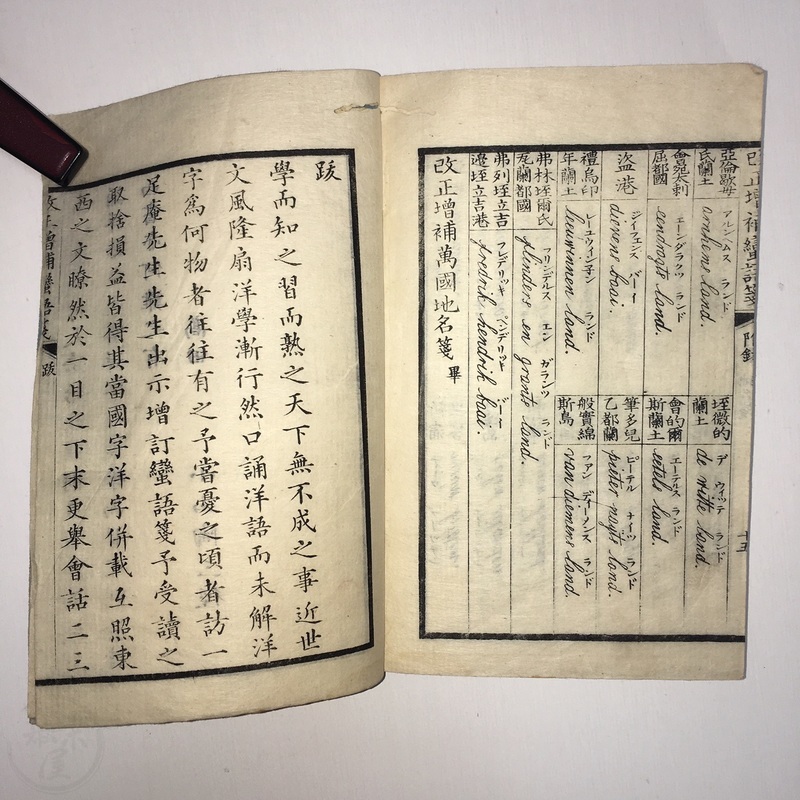 改正增補蠻語箋 附錄 十五
亞倫歇母
氏蘭土
アルンヘムス ランド
arnhems land.
垤徵的
蘭土
デ ウィッテ ランド
de witte land.
會宛太剌
屈都國
エーンダラクツ ランド
eendragts land.
會的爾
斯蘭土
エーテルス ランド
eetels land.
盜港
dievens baai.
筆多兒
乙都蘭
ピーテル ナイツ ランド
pieter nuyts land.
禮烏印
年蘭土
レーユウィンネン ランド
leeuwinnen land.
般實綿
斯島
ファン ディーメンス ランド
van diemens land.
弗林垤爾氏
蘭都國
フリンデルス エン ガランツ ランド
flinders en grants land.
弗列垤立吉
垤立吉港
フレデリッキ ヘンデリッキ
fredrik hendrik baai.
改正增補萬國地名箋 畢
跋
學而知之習而熟之天下無不成之事近世
文風隆扇洋學漸行然口誦洋語而未解洋
字爲何物者往往有之予嘗憂之頃者訪一
足庵先生先生出示增訂蠻語箋予受讀之
取捨損益皆得其當國字洋字併載互照東
西之文瞭然於一目之下末更舉會話二三
改正增補蠻語箋 跋